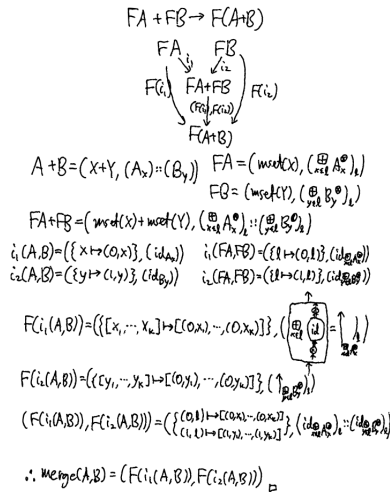 FA + FB → F(A+B)
FA FB
i₁ i₂
F(i₁) FA+FB F(i₂)
(F(i₁),F(i₂))
F(A+B)
A+B = (X+Y, (Aₓ)::(B_y)) FA = (mset(X), (⊞_{x∈l} Aₓ^⊗)_l)
FB = (mset(Y), (⊞_{y∈l} B_y^⊗)_l)
FA+FB = (mset(X)+mset(Y), (⊞_{x∈l} Aₓ^⊗)_l::(⊞_{y∈l} B_y^⊗)_l)
i₁(A,B) = ({x↦(0,x)}, (id_{Aₓ})) i₁(FA,FB) = ({l↦(0,l)}, (id_{⊞_{x∈l} Aₓ^⊗}))
i₂(A,B) = ({y↦(1,y)}, (id_{B_y})) i₂(FA,FB) = ({l↦(1,l)}, (id_{⊞_{y∈l} B_y^⊗}))
F(i₁(A,B)) = ({[x₁,⋯,x_k]↦[(0,x₁),⋯,(0,x_k)]}, (⊞_{x∈l} (id) = ↑)_l)
F(i₂(A,B)) = ({[y₁,⋯,y_k]↦[(0,y₁),⋯,(0,y_k)]}, (↑)_l)
(F(i₁(A,B)), F(i₂(A,B))) = ({(0,l)↦[(0,x₁),⋯,(0,x_k)]
(1,l)↦[(1,y₁),⋯,(1,y_k)]}, (id)_l::(id)_l)
∴ merge(A,B) = (F(i₁(A,B)), F(i₂(A,B))) □